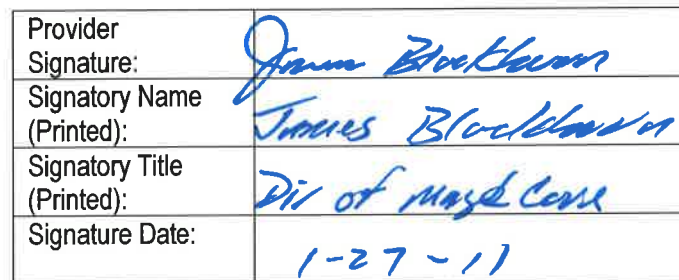 Provider
Signature: James Blackburn
Signatory Name
(Printed): James Blackburn
Signatory Title
(Printed): Dir of
Signature Date:
1-27-11